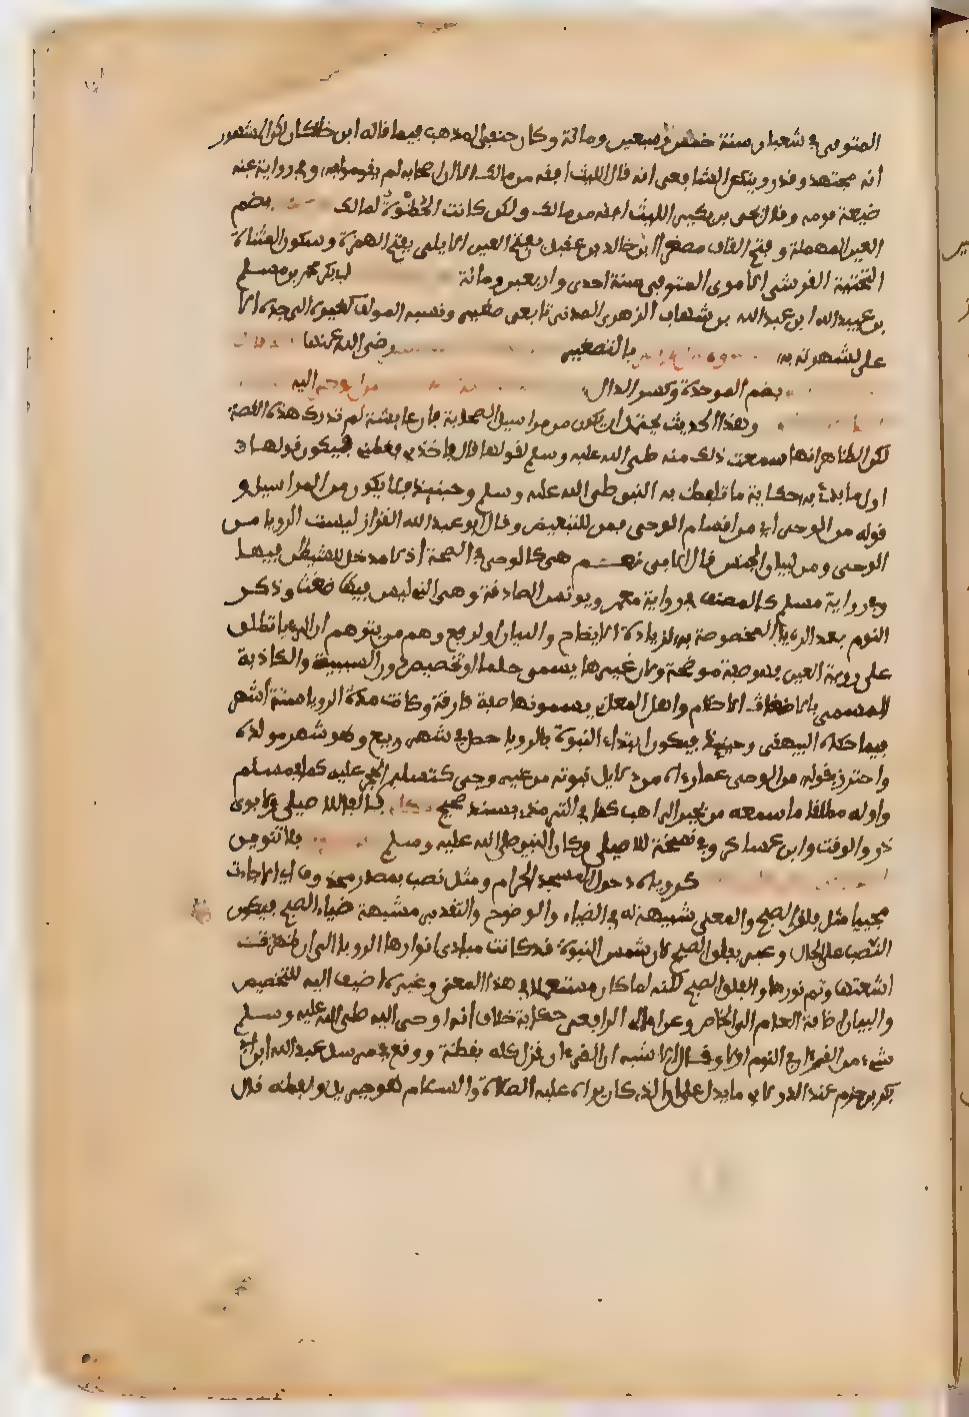 المتوفى في شعبان سنة خمس وسبعين ومائة وكان حنفي المذهب فيما قاله ابن خلكان لكن المشهور
انه مجتهد وقد روينا عن الشافعي انه قال الليث افقه من مالك الا ان اصحابه لم يقوموا به وفي رواية عنه
ضيعه قومه وقال يحيى بن بكير الليث افقه من مالك ولكن كانت الحُظْوَة لمالك بضم
العين المهملة وفتح القاف مصغرا ابن خالد بن عقيل بفتح العين الايلي بفتح الهمزة وسكون المثناة
التحتية القرشي الاموي المتوفى سنة احدى واربعين ومائة ابي بكر محمد بن مسلم
بن عبيد الله ابن عبد الله بن شهاب الزهري المدني تابعي صغير ونسبه المولف كغيره الى جده الا
على لشهرته به بالتصغير رضي الله عنها
بضم الموحدة وكسر الدال اليه
وهذا الحديث يحتمل ان يكون من مراسيل الصحابة فان عايشة لم تدرك هذه القصة
لكن الظاهر انها سمعت ذلك منه صلى الله عليه وسلم لقولها قال فاخذني فغطني فيكون قولها
اول ما بدئ به حكاية ما تلفظ به النبي صلى الله عليه وسلم وحينيذ فلا يكون من المراسيل و
قوله من الوحي اي من اقسام الوحي فمن للتبعيض وقال ابو عبد الله القزاز ليست الرويا من
الوحي ومن لبيان الجنس قال الابي نعم هي كالوحي في الصحة اذ لا مدخل للشيطان فيها
وفي رواية مسلم كالمصنف في رواية معمر ويونس الصادقة وهي التي ليس فيها ضغث وذكر
النوم بعد الرويا المخصوصة به لزيادة الايضاح والبيان او لدفع وهم من يتوهم ان الرويا تطلق
على روية العين فهو صفة موضحة ولان غيرها يسمى حلما او تخصيص دون السيئة والكاذبة
المسمى باضغاث الاحلام واهل المعاني يسمونها صفة فارقة وكانت مدة الرويا ستة اشهر
فيما حكاه البيهقي وحينيذ فيكون ابتداء النبوة بالرويا حصل في شهر ربيع وهو شهر مولده
واحترز بقوله من الوحي عما راه من دلايل نبوته من غير وحي كتسليم الحجر عليه كما في مسلم
واوله مطلقا ما سمعه من بحير الراهب كما في الترمذي بسند صحيح
ذر والوقت وابن عساكر وفي نسخة للاصيلي وكان النبي صلى الله عليه وسلم بلا تنوين
كروياه دخول المسجد الحرام ومثل نصب بمصدر محذوف اي الا جاءت
مجييا مثل فلق الصبح والمعنى شبيهة له في الضياء والوضوح والتقدير مشبهة ضياء الصبح فيكون
النصب على الحال وعبر بفلق الصبح لان شمس النبوة قد كانت مبادي انوارها الرويا الى ان ظهرت
اشعتها وتم نورها والفلق الصبح لكنه لما كان مستعملا في هذا المعنى وغيره اضيف اليه للتخصيص
والبيان اضافة العام الى الخاص وعن امالي الرافعي حكاية خلاف انه اوحي اليه صلى الله عليه وسلم
شيء من القران في النوم اولا وقال الاشبه ان القرءان نزل كله يقظة ووقع في مرسل عبد الله ابن ابي
بكر بن حزم عند الدولابي ما يدل على ان الذي كان يراه عليه الصلاة والسلام هو جبريل ولفظه قال